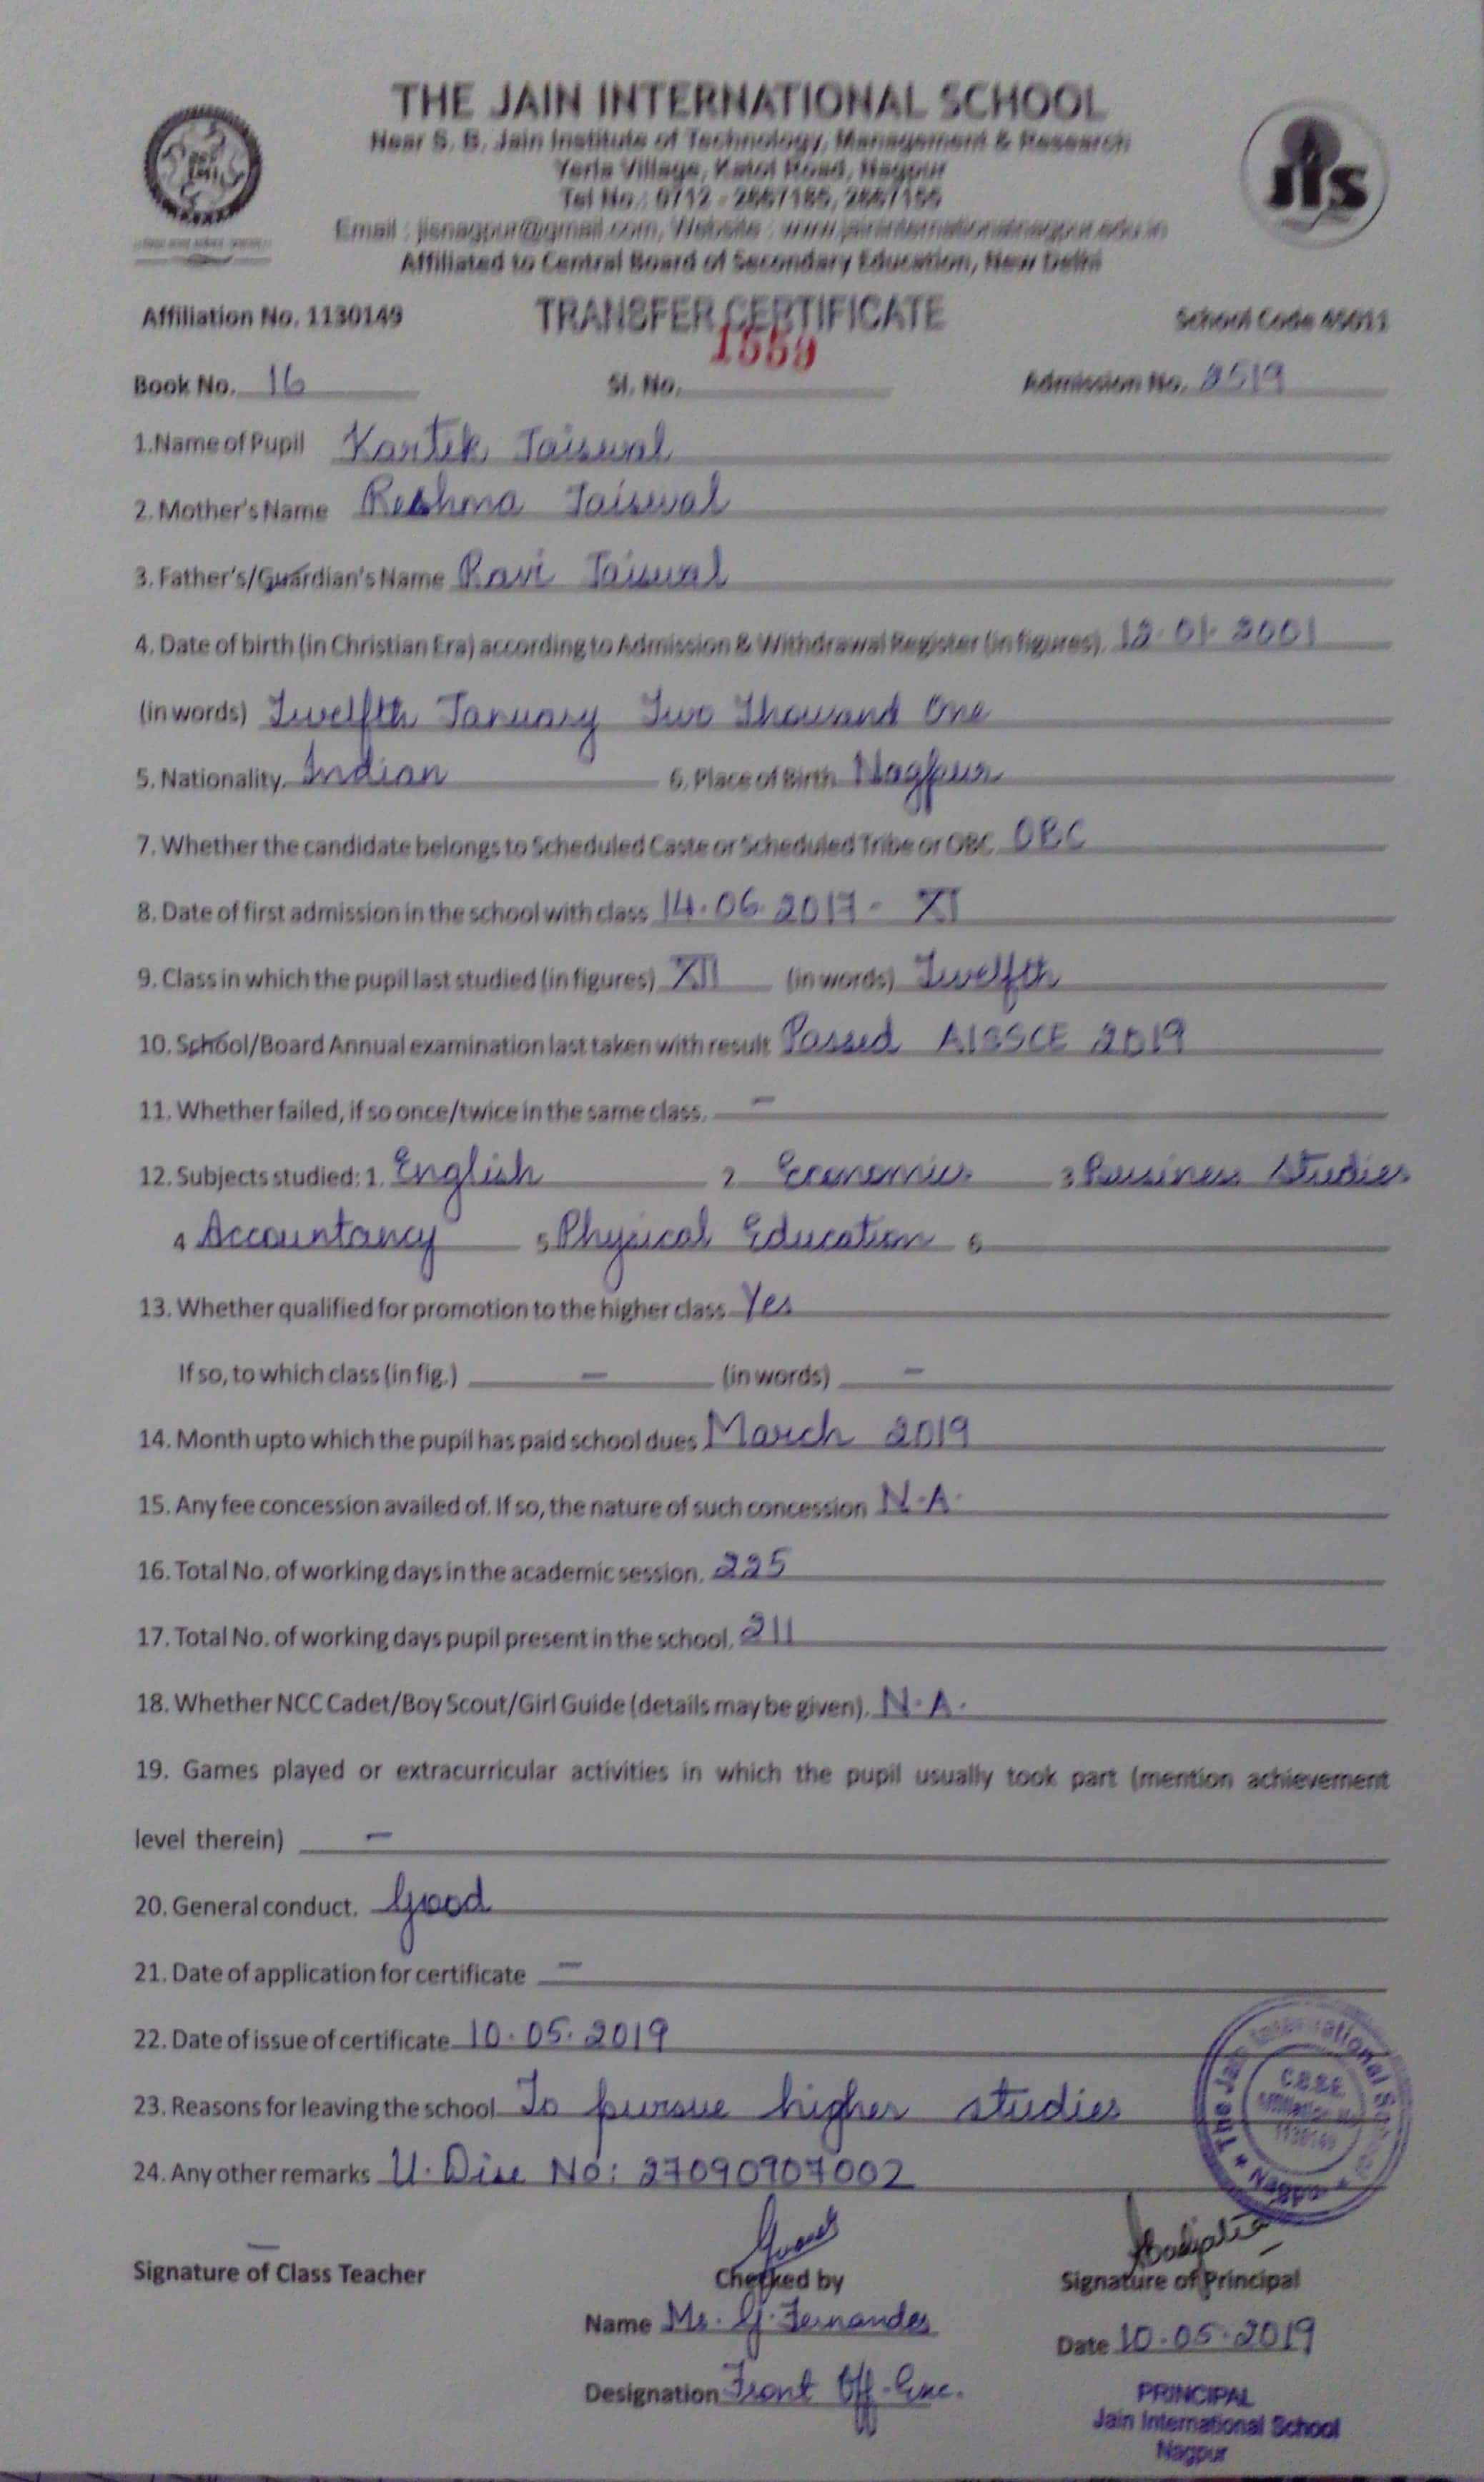 THE JAIN INTERNATIONAL SCHOOL
Near S. B. Jain Institute of Technology, Management & Research
Yerla Village, Katol Road, Nagpur
Tel No.: 0712 - 2667185, 2667155
Email : jisnagpur@gmail.com, Website : www.jaininternationalnagpur.edu.in
Affiliated to Central Board of Secondary Education, New Delhi
jis
Affiliation No. 1130149 TRANSFER CERTIFICATE School Code 45011
Book No. 16 Sl. No. 1559 Admission No. 2519
1.Name of Pupil Kartik Jaiswal
2. Mother's Name Reshma Jaiswal
3. Father's/Guardian's Name Ravi Jaiswal
4. Date of birth (in Christian Era) according to Admission & Withdrawal Register (in figures). 12.01.2001
(in words) Twelfth January Two Thousand One
5. Nationality. Indian 6. Place of Birth Nagpur
7. Whether the candidate belongs to Scheduled Caste or Scheduled Tribe or OBC OBC
8. Date of first admission in the school with class 14.06.2017 - XI
9. Class in which the pupil last studied (in figures) XII (in words) Twelfth
10. School/Board Annual examination last taken with result Passed AISSCE 2019
11. Whether failed, if so once/twice in the same class. -
12. Subjects studied: 1. English 2 Economics 3 Business Studies
4 Accountancy 5 Physical Education 6
13. Whether qualified for promotion to the higher class Yes
If so, to which class (in fig.) - (in words) -
14. Month upto which the pupil has paid school dues March 2019
15. Any fee concession availed of. If so, the nature of such concession N.A.
16. Total No. of working days in the academic session. 225
17. Total No. of working days pupil present in the school. 211
18. Whether NCC Cadet/Boy Scout/Girl Guide (details may be given). N.A.
19. Games played or extracurricular activities in which the pupil usually took part (mention achievement
level therein) -
20. General conduct. Good
21. Date of application for certificate -
22. Date of issue of certificate 10.05.2019
23. Reasons for leaving the school To pursue higher studies
24. Any other remarks U.Dise No: 27090907002
The Jain International School
C.B.S.E.
Affiliation No.
1130149
Nagpur
Signature of Class Teacher Checked by Signature of Principal
Name Ms. G. Fernandes Date 10.05.2019
Designation Front Off. Exe.
PRINCIPAL
Jain International School
Nagpur